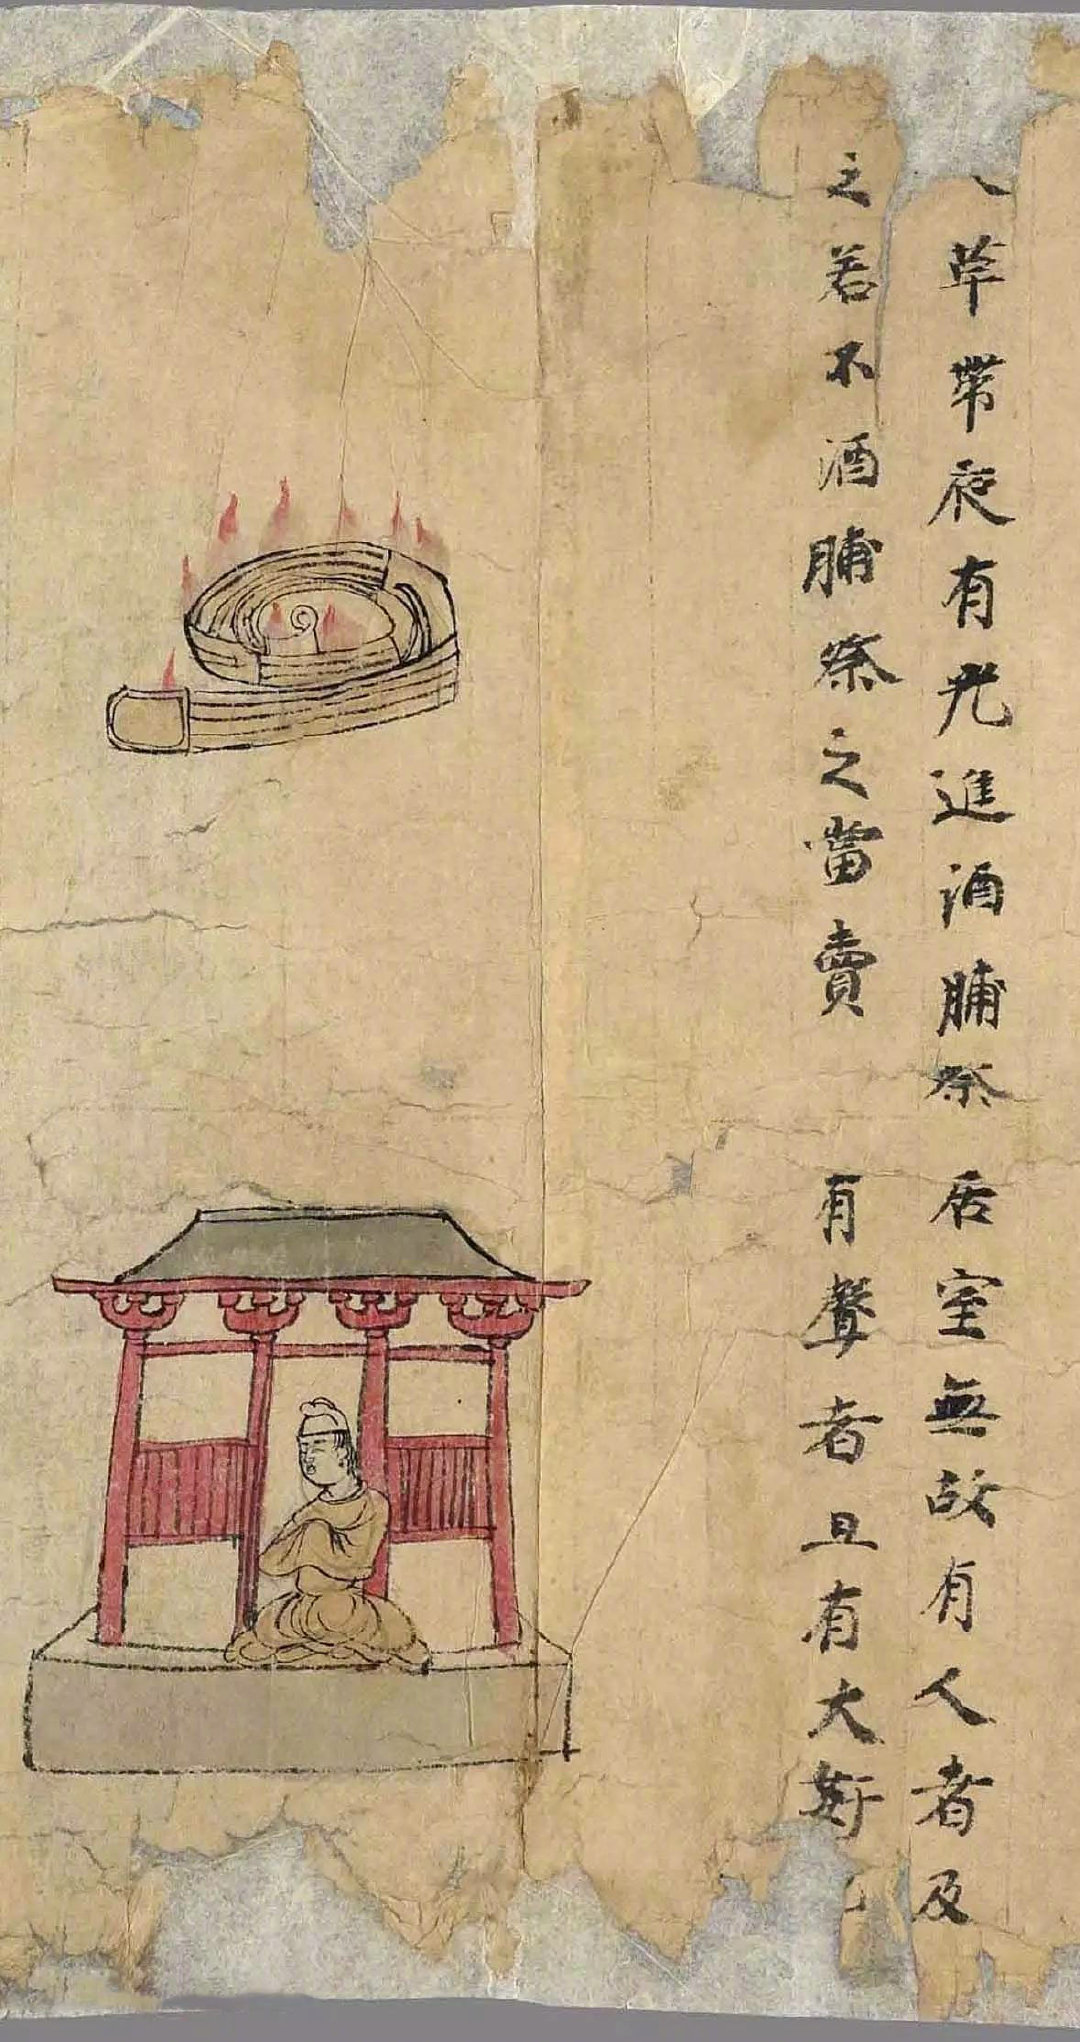 革帶夜有光進酒脯祭
之若不酒脯祭之當賣
居室無故有人者及
有聲者且有大姧